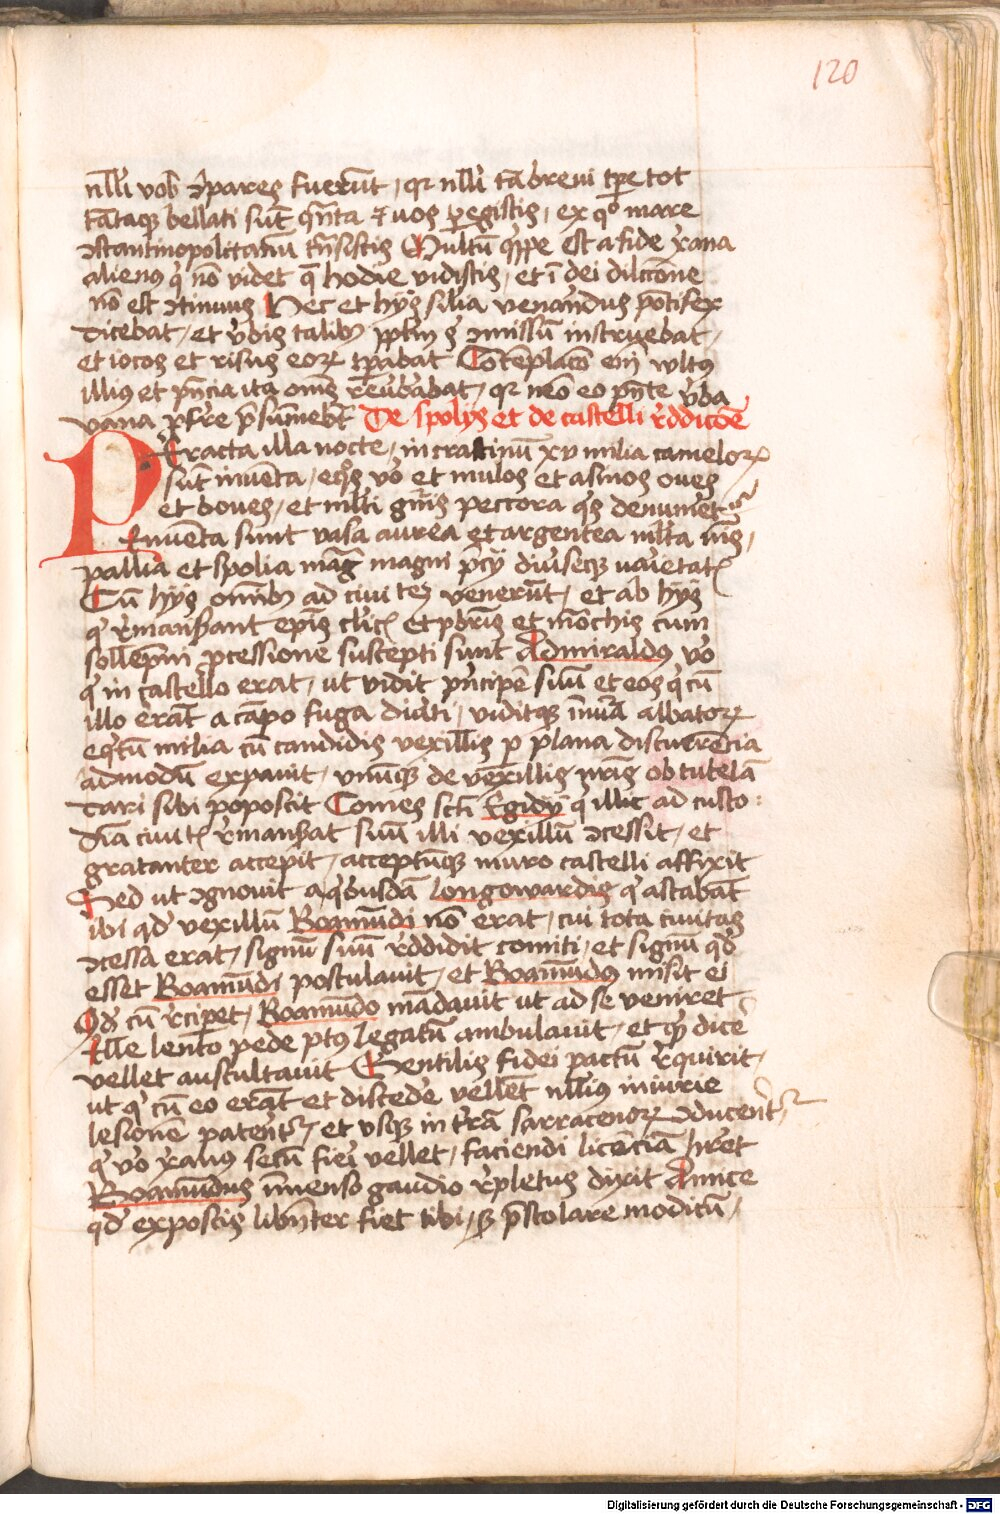 120
nlli vob ꝯpares fuerūt, qr nlli tā breui tp̄e tot
tātaqꝫ bellati sūt qn̄ta ⁊ uos ꝑegistis, ex qͦ mare
ꝯstantinopolitanū tn̄sistis Multū qͥppe est a fide xr̄ana
alienꝰ qͥ nō videt qͣ hodie vidistis, et ī dei dilcc̄one
nō est ꝯtinuus Hec et hijs silia venandus pōtifex
dicebat, et v̓bis talibꝫ pp̄lm sͥ ꝯmissū instruebat,
et iocos et risus eoꝝ tꝑabat Cōtēplac̄o em̄ vultꝰ
illiꝰ et pn̄cia ita om̄s reūb̓abat, qr neō eo pn̄te v̓ba
vana ꝓfr̄e p̄sumebt De spolijs et de castelli rdditōe
Peracta illa nocte, in crastinū xv milia cameloꝝ
sūt inuēta, eqͦs vō et mulos et asinos oues
et boues, et mlti gn̄is peccora qͥs denumēt
Inuēta sunt vasa aurea et argentea mlta nīs,
pallia et spolia māg magni p̄cij diūsecqꝫ vaietatꝭ
Cū hijs om̄ibꝫ ad ciuiteꝫ venerūt, et ab hijs
qͥ r̓manserant epīs clīcꝭ et pbr̄is et mōchis cum
sollēpni ꝓcessione suscepti sunt Admiraldꝰ vō
qͥ in castello erat, ut vidit pn̄cipē suū et eos qͥ cū
illo erāt a cāpo fuga dicti, viditqꝫ īnuīa albatoꝝ
eqͥtū milia cū candidis vexillis ꝑ plana discurrēcia
admodū expauit, vnūqꝫ de vexillis nr̄is ob tutelā
dari sibi poposcit Comes sctī Egidij qͥ illic ad custo:
diā ciuitꝭ r̓manserat suū illi vexillū ꝯcessit, et
gratanter accepit, acceptūqꝫ muro castelli affixit
Sed ut ꝯgnouit a qͥbusdā longowardis qͥ astabāt
ibi qd̓ vexillū Boamūdi nō erat, cui tota ciuitas
ꝯcessa erat, signū suū r̓ddidit comiti, et signū qd̓
esset Boamūdi postulauit, et Boamūdꝰ misit ei
Qd̓ cū r̓ciperet, Boamūdo mādauit ut ad se veniret
Ille lento pede ptꝰ legatū ambulauit, et qͥd dice
vellet auscultauit Gentilis fidei pactū r̓quirit,
ut qͥ cū eo erāt et discede vellēt nlliꝰ iniurie
lesionē patent᷑, et vsqꝫ in t̓rā sarracenoꝝ ꝯducent᷑
qͥ vō xr̄anꝰ secū fiei vellet, faciendi licēciā hr̄et
Boamūdus īmenso gaudio r̓pletus dixit Amice
qd̓ exposcis libn̄ter fiet tibi, sꝫ p̄stolare modicū,
Digitalisierung gefördert durch die Deutsche Forschungsgemeinschaft - DFG